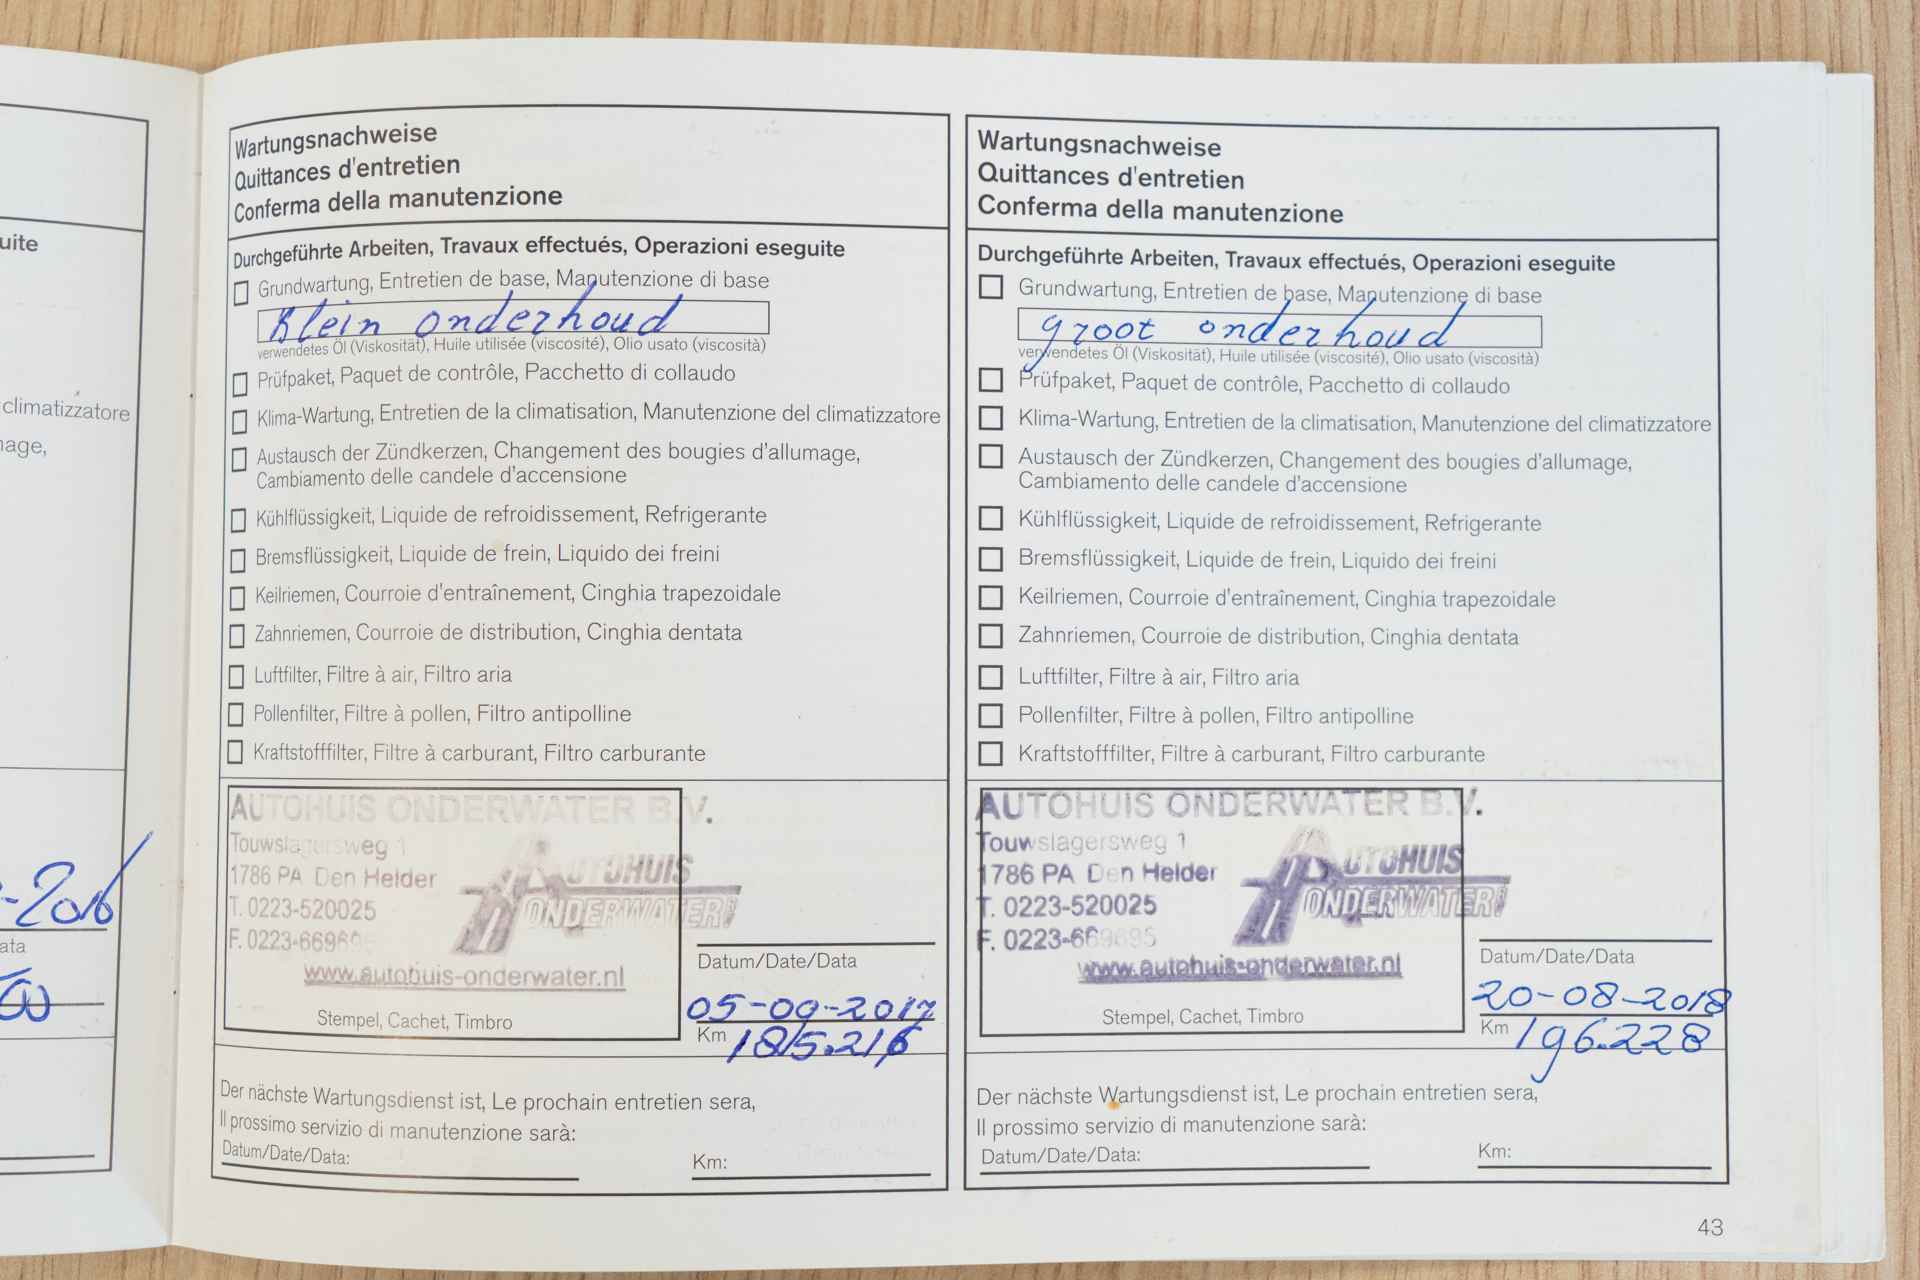 uite
climatizzatore
mage,
-2016
ata
Wartungsnachweise
Quittances d'entretien
Conferma della manutenzione
Durchgeführte Arbeiten, Travaux effectués, Operazioni eseguite
Grundwartung, Entretien de base, Manutenzione di base
Klein onderhoud
verwendetes Öl (Viskosität), Huile utilisée (viscosité), Olio usato (viscosità)
Prüfpaket, Paquet de contrôle, Pacchetto di collaudo
Klima-Wartung, Entretien de la climatisation, Manutenzione del climatizzatore
Austausch der Zündkerzen, Changement des bougies d'allumage,
Cambiamento delle candele d'accensione
Kühlflüssigkeit, Liquide de refroidissement, Refrigerante
Bremsflüssigkeit, Liquide de frein, Liquido dei freini
Keilriemen, Courroie d'entraînement, Cinghia trapezoidale
Zahnriemen, Courroie de distribution, Cinghia dentata
Luftfilter, Filtre à air, Filtro aria
Pollenfilter, Filtre à pollen, Filtro antipolline
Kraftstofffilter, Filtre à carburant, Filtro carburante
AUTOHUIS ONDERWATER B.V.
Touwslagersweg 1
1786 PA Den Helder
T. 0223-520025
F. 0223-669695
AUTOHUIS
ONDERWATER
www.autohuis-onderwater.nl
Stempel, Cachet, Timbro
Datum/Date/Data
05-09-2017
Km
185.216
Der nächste Wartungsdienst ist, Le prochain entretien sera,
Il prossimo servizio di manutenzione sarà:
Datum/Date/Data:
Km:
Wartungsnachweise
Quittances d'entretien
Conferma della manutenzione
Durchgeführte Arbeiten, Travaux effectués, Operazioni eseguite
Grundwartung, Entretien de base, Manutenzione di base
groot onderhoud
verwendetes Öl (Viskosität), Huile utilisée (viscosité), Olio usato (viscosità)
Prüfpaket, Paquet de contrôle, Pacchetto di collaudo
Klima-Wartung, Entretien de la climatisation, Manutenzione del climatizzatore
Austausch der Zündkerzen, Changement des bougies d'allumage,
Cambiamento delle candele d'accensione
Kühlflüssigkeit, Liquide de refroidissement, Refrigerante
Bremsflüssigkeit, Liquide de frein, Liquido dei freini
Keilriemen, Courroie d'entraînement, Cinghia trapezoidale
Zahnriemen, Courroie de distribution, Cinghia dentata
Luftfilter, Filtre à air, Filtro aria
Pollenfilter, Filtre à pollen, Filtro antipolline
Kraftstofffilter, Filtre à carburant, Filtro carburante
AUTOHUIS ONDERWATER B.V.
Touwslagersweg 1
1786 PA Den Helder
T. 0223-520025
F. 0223-669695
AUTOHUIS
ONDERWATER
www.autohuis-onderwater.nl
Stempel, Cachet, Timbro
Datum/Date/Data
20-08-2018
Km
196.228
Der nächste Wartungsdienst ist, Le prochain entretien sera,
Il prossimo servizio di manutenzione sarà:
Datum/Date/Data:
Km:
43